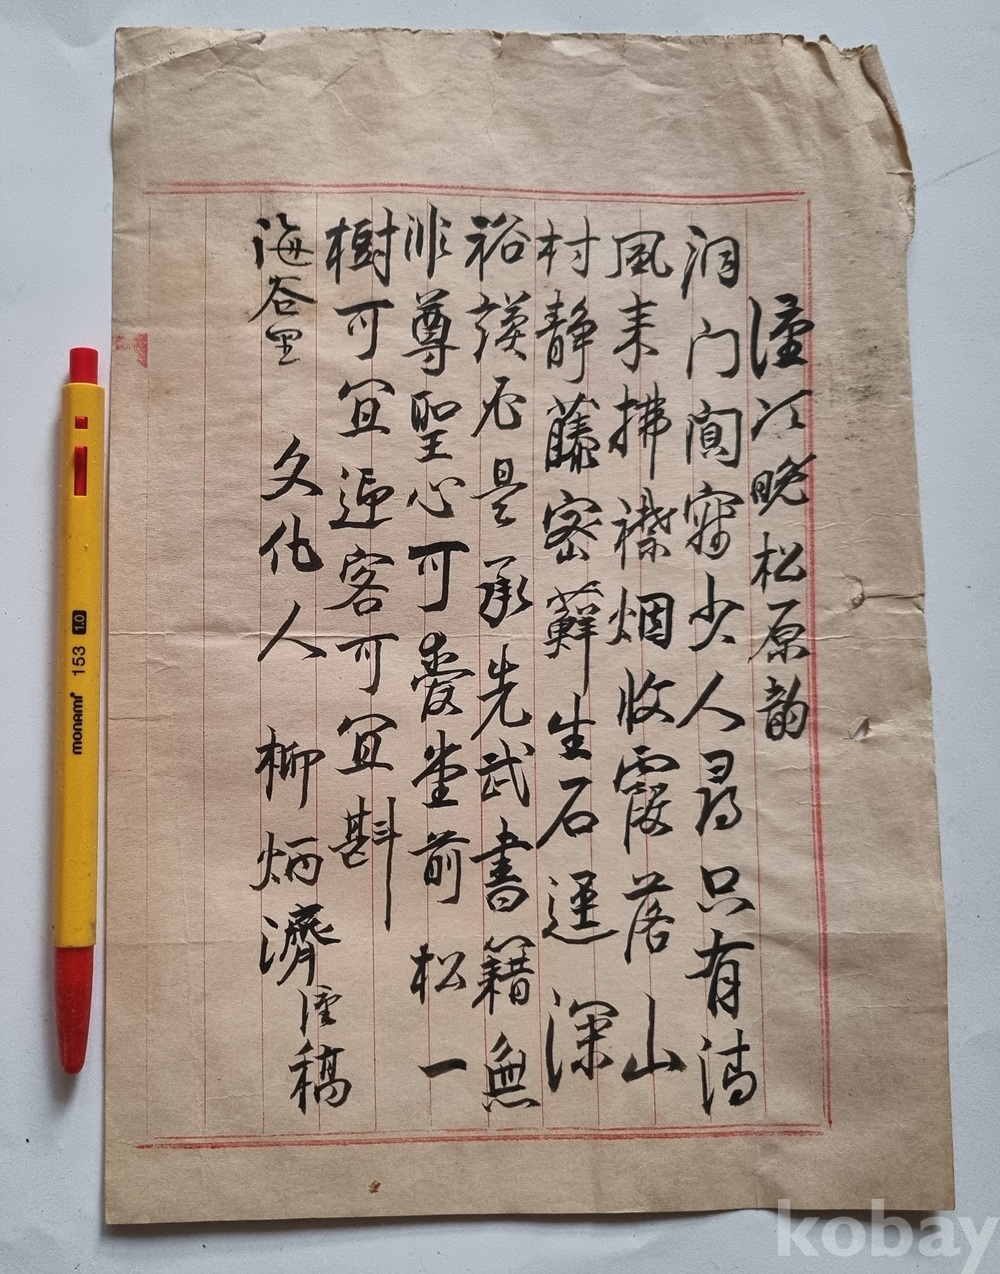 謹次晚松原韵
洞门闃寂少人尋只有清
風来拂襟烟收霞落山
村静藤密蘚生石逕深
裕謨是承先武書籍無
非尊聖心可愛堂前松一
樹可宜迎客可宜斟
海谷里 文化人 柳炳濟謹稿
monami 153 1.0
kobay